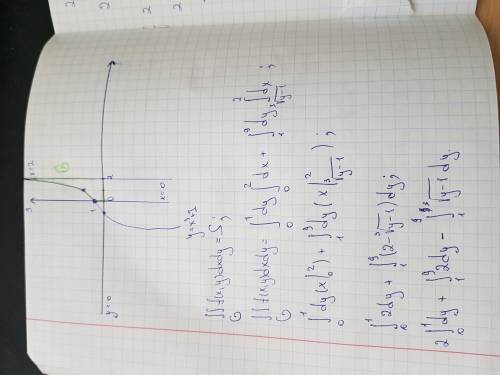 y
x=2
G
1
0
2
y=0
x=0
y=x³+1
∬_G f(x,y)dxdy = S;
∬_G f(x,y)dxdy = ∫_0^1 dy ∫_0^2 dx + ∫_1^9 dy ∫_{∛(y-1)}^2 dx;
∫_0^1 dy (x|_0^2) + ∫_1^9 dy (x|_{∛(y-1)}^2);
∫_0^1 2dy + ∫_1^9 (2-∛(y-1))dy;
2∫_0^1 dy + ∫_1^9 2dy - ∫_1^9 ∛(y-1) dy.